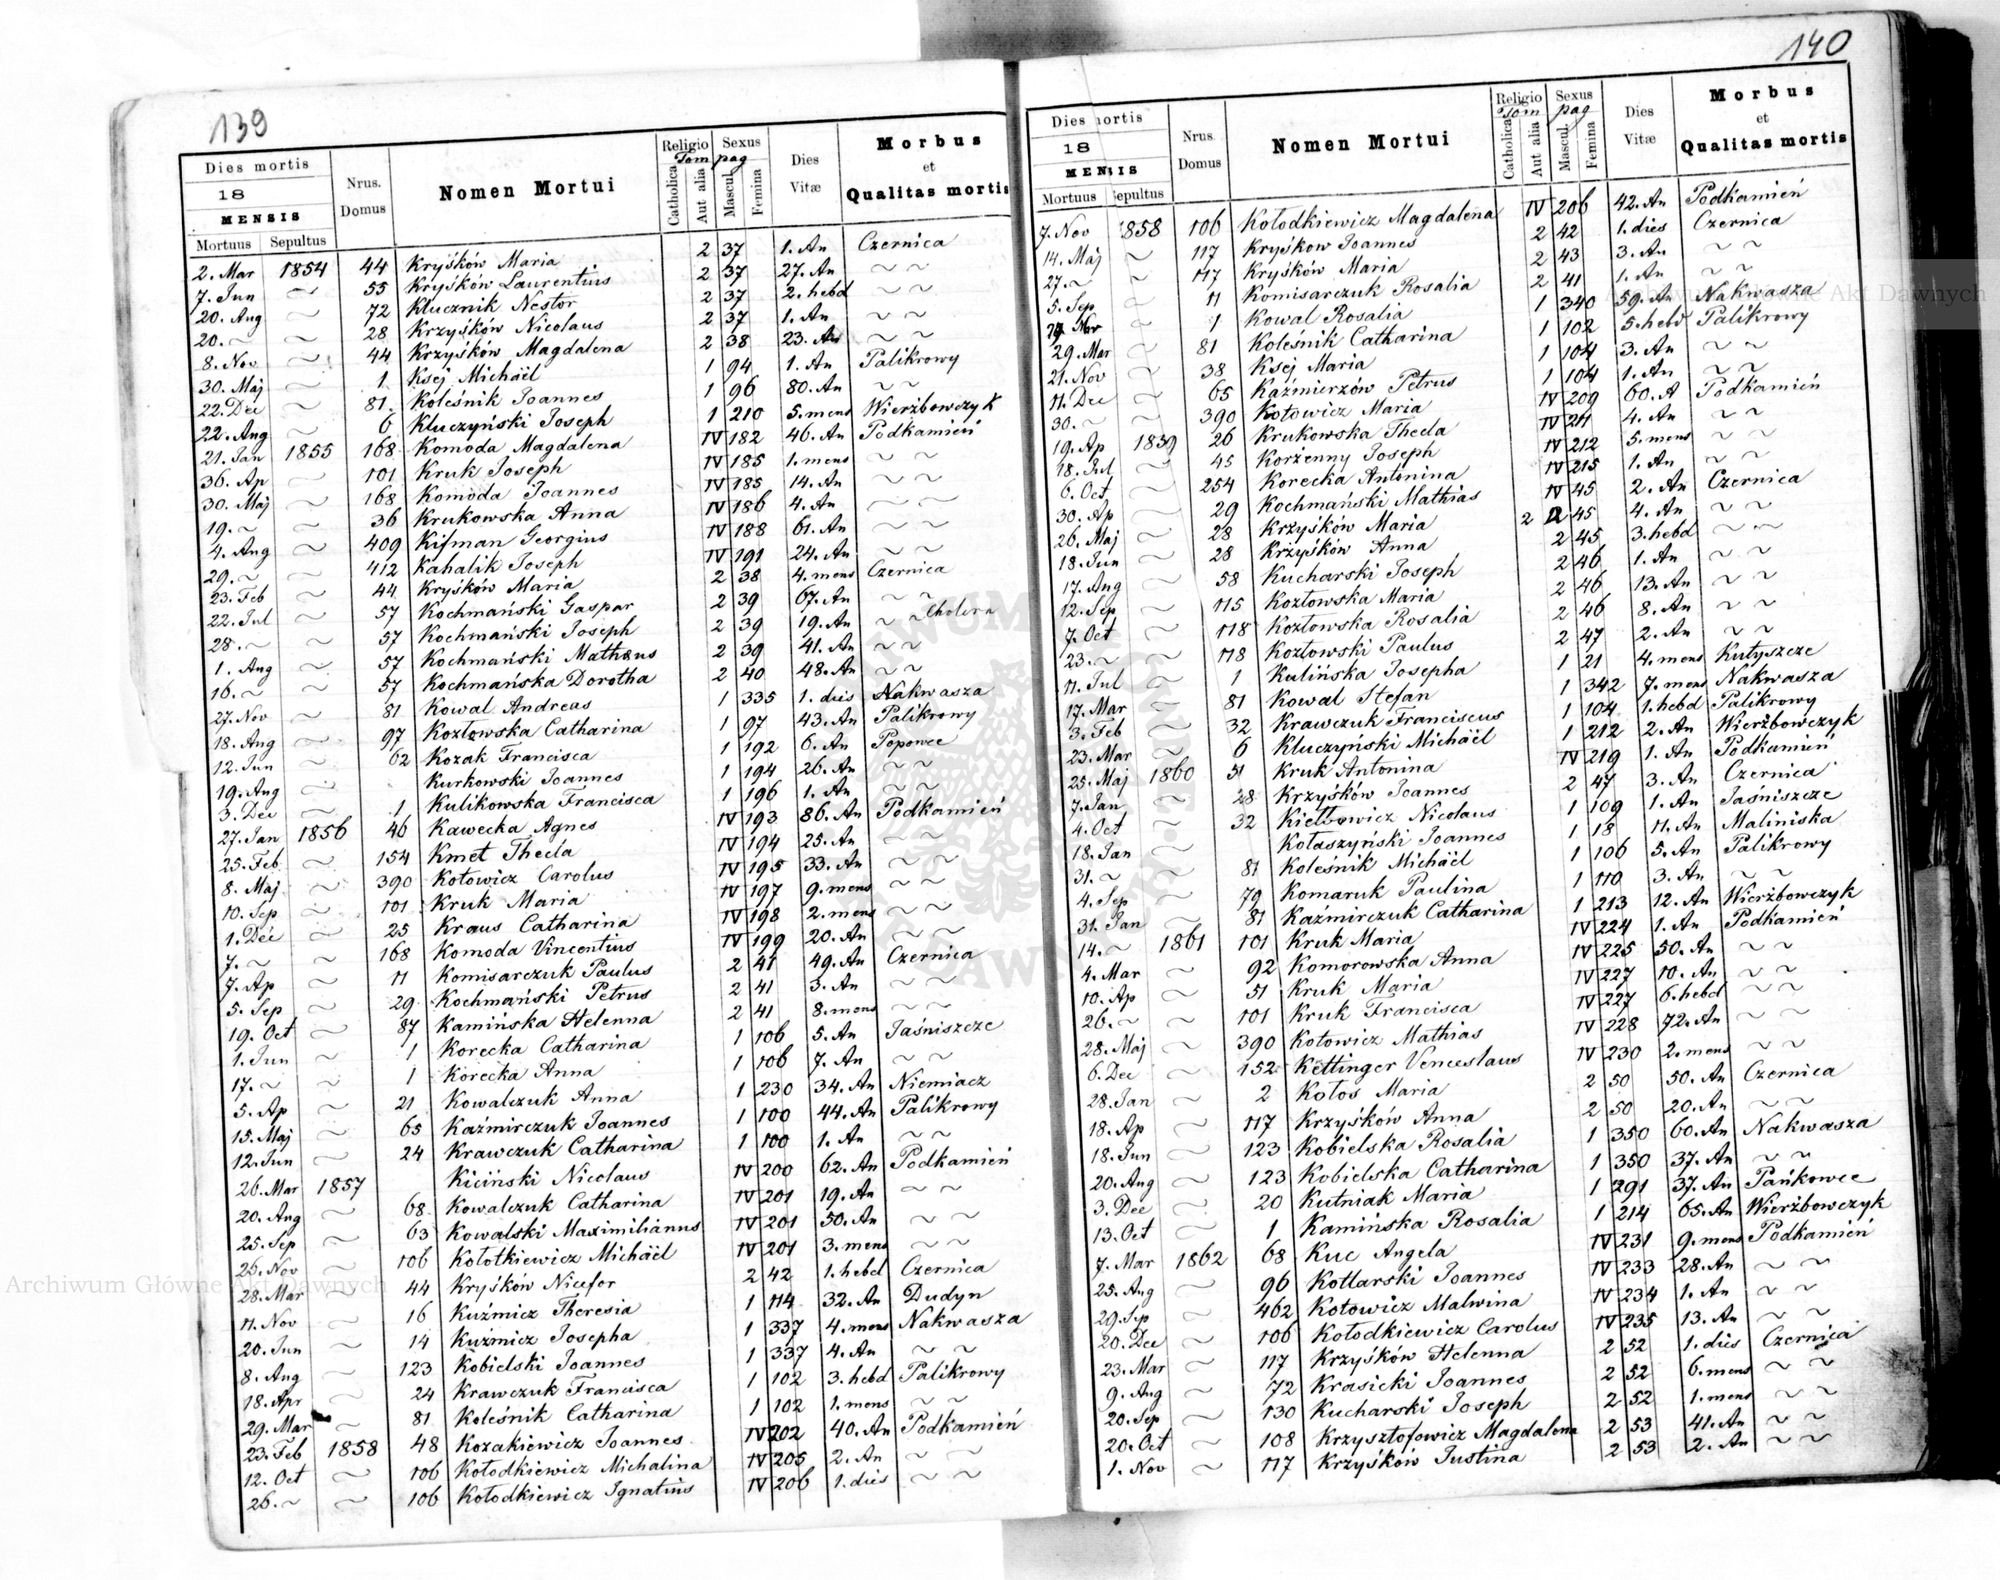 139
Dies mortis Nrus. Domus Nomen Mortui Religio Sexus Dies Vitæ Morbus et Qualitas mortis
18 Tom pag
MENSIS Catholica Aut alia Mascul. Femina
Mortuus Sepultus
2. Mar 1854 44 Kryśków Maria 2 37 1. An Czernica
7. Jun ~ 55 Kryśków Laurentius 2 37 27. An ~ ~
20. Aug ~ 72 Klucznik Nestor 2 37 2. hebd ~ ~
20. ~ ~ 28 Krzyśków Nicolaus 2 37 1. An ~ ~
8. Nov ~ 44 Krzyśków Magdalena 2 38 23. An ~ ~
30. Maj ~ 1 Ksej Michäel 1 94 1. An Palikrowy
22. Dec ~ 81 Koleśnik Joannes 1 96 80. An ~ ~
22. Aug ~ 6 Kluczyński Joseph 1 210 5. mens Wierzbowczyk
21. Jan 1855 168 Komoda Magdalena IV 182 46. An Podkamień
36. Ap ~ 101 Kruk Joseph IV 185 1. mens ~ ~
30. Maj ~ 168 Komoda Joannes IV 185 14. An ~ ~
19. ~ ~ 36 Krukowska Anna IV 186 4. An ~ ~
4. Aug ~ 409 Kifman Georgius IV 188 61. An ~ ~
29. ~ ~ 412 Kahalik Joseph IV 191 24. An ~ ~
23. Feb ~ 44 Kryśków Maria 2 38 4. mens Czernica
22. Jul ~ 57 Kochmański Gaspar 2 39 67. An ~ ~
28. ~ ~ 57 Kochmański Joseph 2 39 19. An ~ ~ Cholera
1. Aug ~ 57 Kochmański Matheus 2 39 41. An ~ ~
16. ~ ~ 57 Kochmańska Dorotha 2 40 48. An ~ ~
27. Nov ~ 81 Kowal Andreas 1 335 1. dies Nakwasza
18. Aug ~ 97 Kozłowska Catharina 1 97 43. An Palikrowy
12. Jun ~ 62 Kozak Francisca 1 192 6. An Popowce
19. Aug ~ Kurkowski Joannes 1 194 26. An ~ ~
3. Dec ~ 1 Kulikowska Francisca 1 196 1. An ~ ~
27. Jan 1856 46 Kawecka Agnes IV 193 86. An Podkamień
25. Feb ~ 154 Kmet Thecla IV 194 25. An ~ ~
8. Maj ~ 390 Kotowicz Carolus IV 195 33. An ~ ~
10. Sep ~ 101 Kruk Maria IV 197 9. mens ~ ~
1. Dec ~ 25 Kraus Catharina IV 198 2. mens ~ ~
7. ~ ~ 168 Komoda Vincentius IV 199 20. An ~ ~
7. Ap ~ 11 Komisarczuk Paulus 2 41 49. An Czernica
5. Sep ~ 29 Kochmański Petrus 2 41 3. An ~ ~
19. Oct ~ 87 Kamińska Helenna 2 41 8. mens ~ ~
1. Jun ~ 1 Korecka Catharina 1 106 5. An Jaśniszcze
17. ~ ~ 1 Korecka Anna 1 106 7. An ~ ~
5. Ap ~ 21 Kowalczuk Anna 1 230 34. An Niemiacz
15. Maj ~ 65 Kaźmirczuk Joannes 1 100 44. An Palikrowy
12. Jun ~ 24 Krawczuk Catharina 1 100 1. An ~ ~
26. Mar 1857 Kiciński Nicolaus IV 200 62. An Podkamień
20. Aug ~ 68 Kowalczuk Catharina IV 201 19. An ~ ~
25. Sep ~ 63 Kowalski Maximilianus IV 201 50. An ~ ~
25. Nov ~ 106 Kołotkiewicz Michäel IV 201 3. mens ~ ~
28. Mar ~ 44 Kryśków Nicefor 2 42 1. hebd Czernica
11. Nov ~ 16 Kuźmicz Theresia 1 114 32. An Dudyn
20. Jun ~ 14 Kuźmicz Josepha 1 337 4. mens Nakwasza
8. Aug ~ 123 Kobielski Joannes 1 337 4. An ~ ~
18. Apr ~ 24 Krawczuk Francisca 1 102 3. hebd Palikrowy
29. Mar ~ 81 Koleśnik Catharina 1 102 1. mens ~ ~
23. Feb 1858 48 Kozakiewicz Joannes IV 202 40. An Podkamień
12. Oct ~ 106 Kołodkiewicz Michalina IV 205 2. An ~ ~
26. ~ ~ 106 Kołodkiewicz Ignatius IV 206 1. dies ~ ~
140
Dies mortis Nrus. Domus Nomen Mortui Religio Sexus Dies Vitæ Morbus et Qualitas mortis
18 Tom pag
MENSIS Catholica Aut alia Mascul. Femina
Mortuus Sepultus
7. Nov 1858 106 Kołodkiewicz Magdalena IV 206 42. An Podkamień
14. Maj ~ 117 Kryśkow Joannes 2 42 1. dies Czernica
27. ~ ~ 117 Kryśków Maria 2 43 3. An ~ ~
5. Sep ~ 11 Komisarczuk Rosalia 2 41 1. An ~ ~
Nov ~ 1 Kowal Rosalia 1 340 59. An Nakwasza
29. Mar ~ 81 Koleśnik Catharina 1 102 5. hebd Palikrowy
21. Nov ~ 38 Ksej Maria 1 104 3. An ~ ~
11. Dec ~ 65 Kaźmierzów Petrus 1 104 1. An ~ ~
30. ~ ~ 390 Kotowicz Maria IV 209 60. A Podkamień
19. Ap 1859 26 Krukowska Thecla IV 211 4. An ~ ~
18. Jul ~ 45 Korżenny Joseph IV 212 5. mens ~ ~
6. Oct ~ 254 Korecka Antonina IV 215 1. An ~ ~
30. Ap ~ 29 Kochmański Mathias IV 45 2. An Czernica
26. Maj ~ 28 Krzyśków Maria 2 45 4. An ~ ~
18. Jun ~ 28 Krzyśków Anna 2 45 3. hebd ~ ~
17. Aug ~ 58 Kucharski Joseph 2 46 1. An ~ ~
12. Sep ~ 115 Kozłowska Maria 2 46 13. An ~ ~
7. Oct ~ 118 Kozłowska Rosalia 2 46 8. An ~ ~
23. ~ ~ 118 Kozłowski Paulus 2 47 2. An ~ ~
11. Jul ~ 1 Kulińska Josepha 1 21 4. mens Kutyszcze
17. Mar ~ 81 Kowal Stefan 1 342 7. mens Nakwasza
3. Feb ~ 32 Krawczuk Franciscus 1 104 1. hebd Palikrowy
23. Mar ~ 6 Kluczyński Michäel 1 212 2. An Wierzbowczyk
25. Maj 1860 51 Kruk Antonina IV 219 1. An Podkamień
7. Jan ~ 28 Krzyśków Joannes 2 47 3. An Czernica
4. Oct ~ 32 Kiełbowicz Nicolaus 1 109 1. An Jaśniszcze
18. Jan ~ Kołaszyński Joannes 1 18 11. An Maliniska
31. ~ ~ 81 Koleśnik Michäel 1 106 5. An Palikrowy
4. Sep ~ 79 Komaruk Paulina 1 110 3. An ~ ~
31. Jan ~ 81 Kaźmirczuk Catharina 1 213 12. An Wierzbowczyk
14. ~ 1861 101 Kruk Maria IV 224 1. An Podkamień
4. Mar ~ 92 Komorowska Anna IV 225 50. An ~ ~
10. Ap ~ 51 Kruk Maria IV 227 10. An ~ ~
26. ~ ~ 101 Kruk Francisca IV 227 6. hebd ~ ~
28. Maj ~ 390 Kotowicz Mathias IV 228 72. An ~ ~
6. Dec ~ 152 Kettinger Venceslaus IV 230 2. mens ~ ~
28. Jan ~ 2 Kołos Maria 2 50 50. An Czernica
18. Ap ~ 117 Krzyśków Anna 2 50 20. An ~ ~
18. Jun ~ 123 Kobielska Rosalia 1 350 60. An Nakwasza
20. Aug ~ 123 Kobielska Catharina 1 350 37. An ~ ~
3. Dec ~ 20 Kutniak Maria 1 291 37. An Pańkowce
13. Oct ~ 1 Kamińska Rosalia 1 214 65. An Wierzbowczyk
7. Mar 1862 68 Kuc Angela IV 231 9. mens Podkamień
25. Aug ~ 96 Kotlarski Joannes IV 233 28. An ~ ~
29. Sep ~ 462 Kotowicz Malwina IV 234 1. An ~ ~
20. Dec ~ 106 Kołodkiewicz Carolus IV 235 13. An ~ ~
23. Mar ~ 117 Krzyśków Helenna 2 52 1. dies Czernica
9. Aug ~ 72 Krasicki Joannes 2 52 6. mens ~ ~
20. Sep ~ 130 Kucharski Joseph 2 52 1. mens ~ ~
20. Oct ~ 108 Krzysztofowicz Magdalena 2 53 41. An ~ ~
1. Nov ~ 117 Krzyśków Justina 2 53 2. An ~ ~
Archiwum Główne Akt Dawnych
Archiwum Główne Akt Dawnych